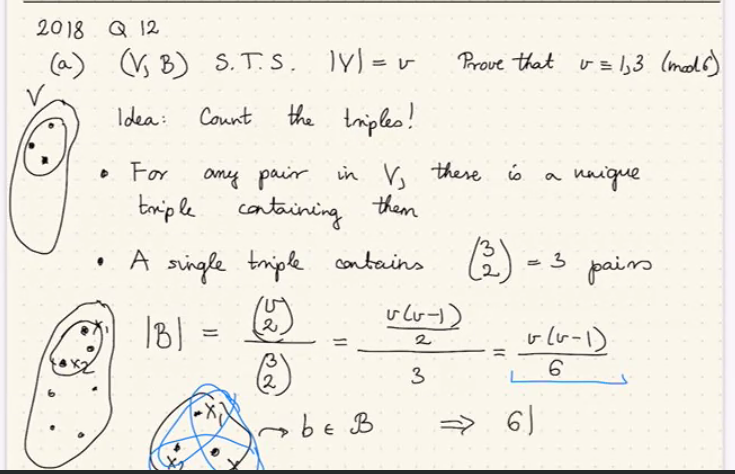 2018 Q 12
(a) (V, B) S.T.S. |V| = v Prove that v ≡ 1,3 (mod 6)
V
Idea: Count the triples!
• For any pair in V, there is a unique
triple containing them
• A single triple contains (3 2) = 3 pairs
x₁
x2
|B| = (v 2) / (3 2) = (v(v-1)/2) / 3 = v(v-1) / 6
x₁ → b ∈ B ⇒ 6|